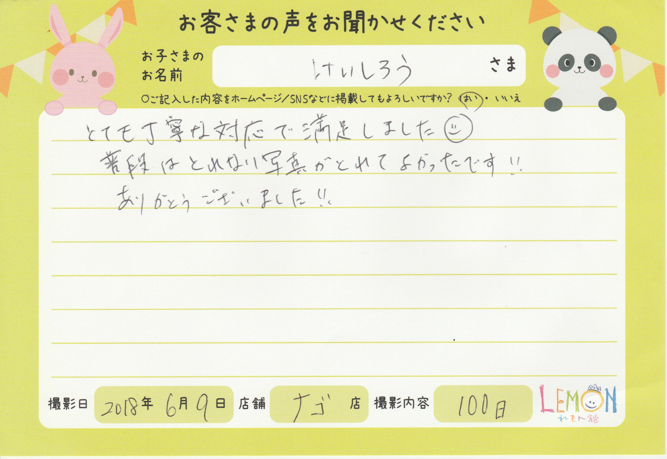 お客さまの声をお聞かせください
お子さまの
お名前
けいしろう さま
○ご記入した内容をホームページ/SNSなどに掲載してもよろしいですか? はい・いいえ
とても丁寧な対応で満足しました
普段はとれない写真がとれてよかったです!!
ありがとうございました!!
撮影日 2018年 6月 9日 店舗 ナゴ 店 撮影内容 100日
LEMON
れもん館